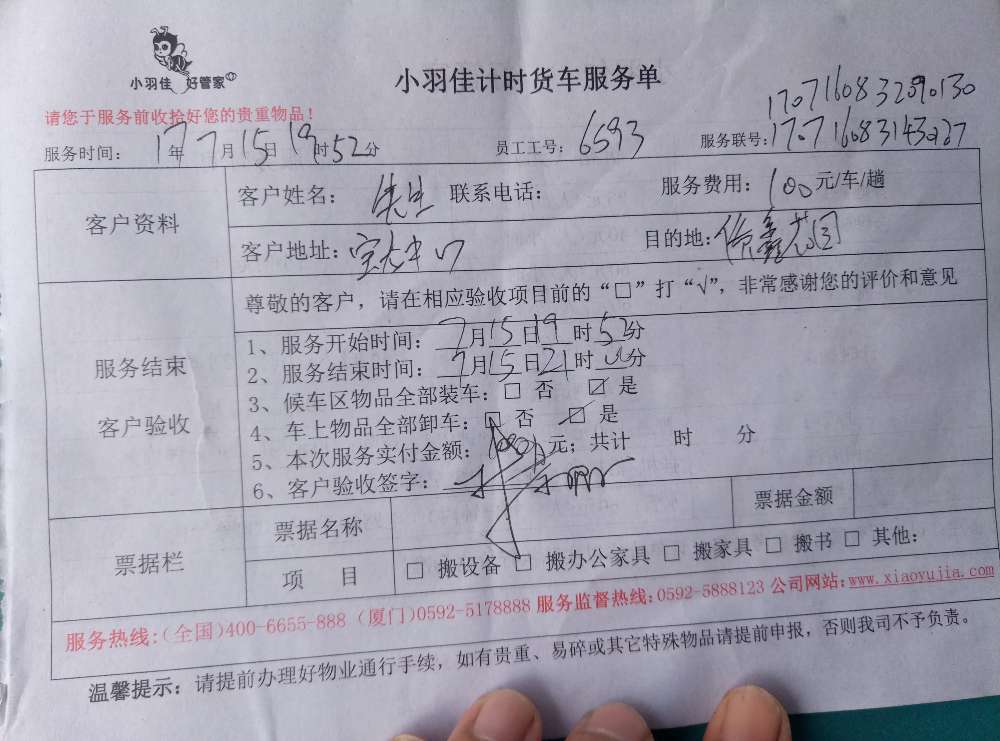 小羽佳 好管家
小羽佳计时货车服务单
请您于服务前收拾好您的贵重物品！
170716083290130
服务时间： 17年7月15日19时52分 员工工号：6593 服务联号：1707160831430227
客户资料
客户姓名： 先生 联系电话： 服务费用：100元/车/趟
客户地址：宝龙中心 目的地：鑫花园
尊敬的客户，请在相应验收项目前的“□”打“√”，非常感谢您的评价和意见
服务结束
客户验收
1、服务开始时间：7月15日19时52分
2、服务结束时间：7月15日21时分
3、候车区物品全部装车：□ 否 ☑ 是
4、车上物品全部卸车：□ 否 ☑ 是
5、本次服务实付金额： 元；共计 时 分
6、客户验收签字：
票据栏
票据名称 票据金额
项 目 □ 搬设备 □ 搬办公家具 □ 搬家具 □ 搬书 □ 其他：
服务热线：(全国)400-6655-888 (厦门)0592-5178888 服务监督热线：0592-5888123 公司网站：www.xiaoyujia.com
温馨提示：请提前办理好物业通行手续，如有贵重、易碎或其它特殊物品请提前申报，否则我司不予负责。